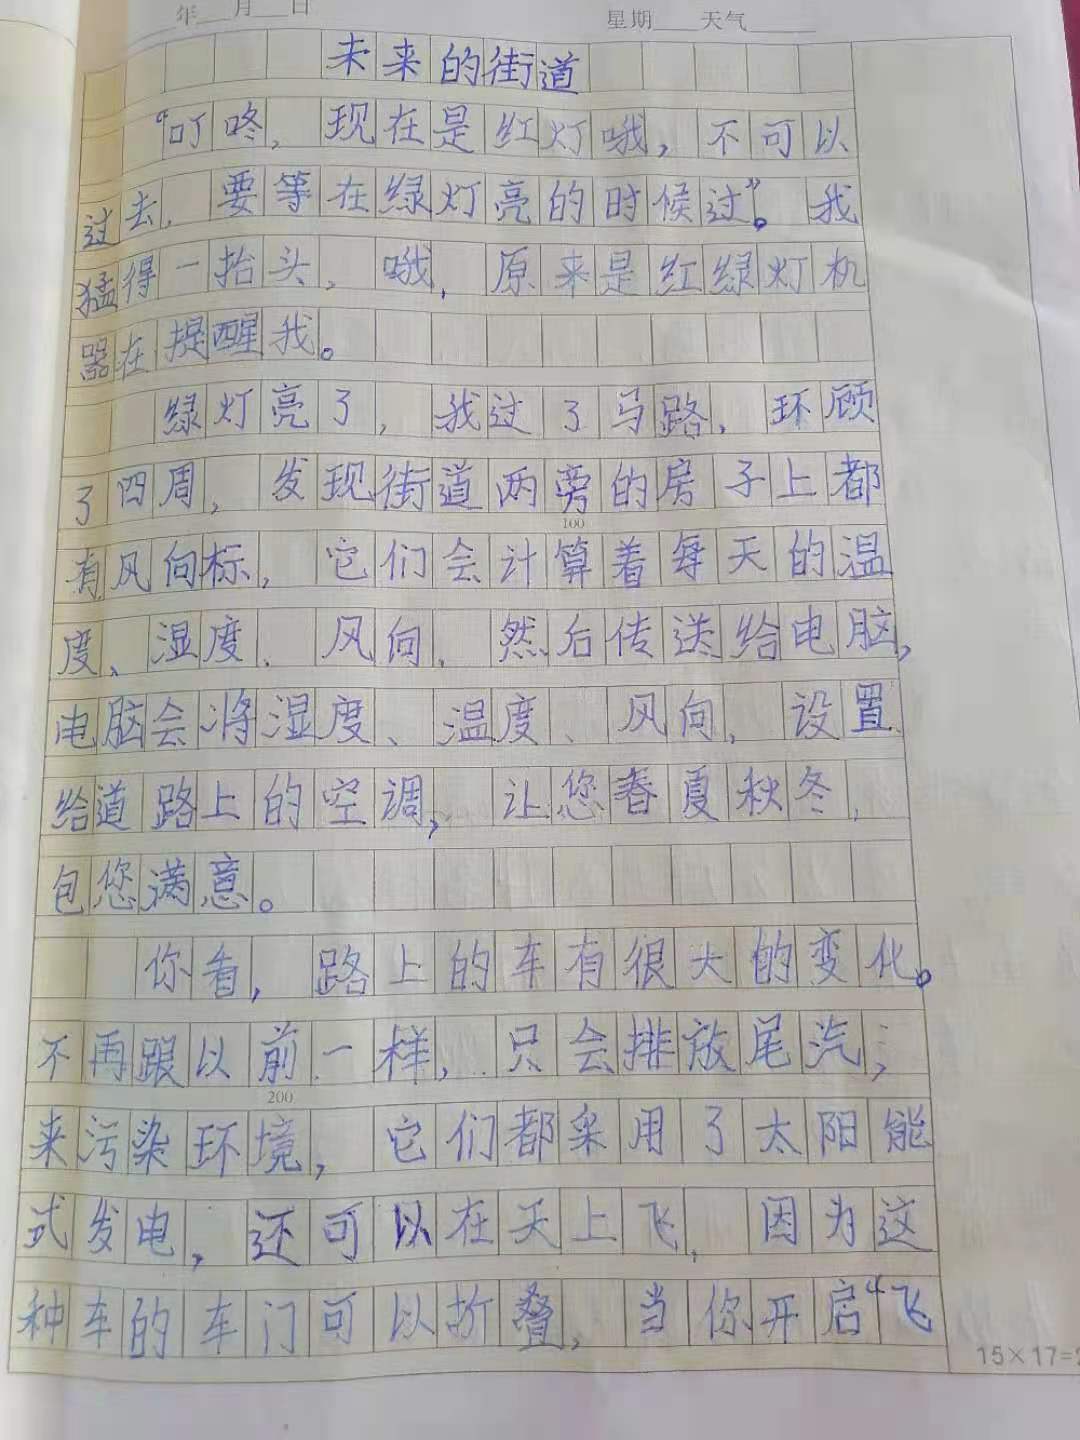 年 月 日 星期 天气
未来的街道
“叮咚，现在是红灯哦，不可以
过去，要等在绿灯亮的时候过”。我
猛得一抬头，哦，原来是红绿灯机
器在提醒我。
绿灯亮了，我过了马路，环顾
了四周，发现街道两旁的房子上都
100
有风向标，它们会计算着每天的温
度、湿度、风向，然后传送给电脑，
电脑会将湿度、温度、风向，设置
给道路上的空调，让您春夏秋冬，
包您满意。
你看，路上的车有很大的变化。
不再跟以前一样，只会排放尾汽；
200
来污染环境，它们都采用了太阳能
式发电，还可以在天上飞，因为这
种车的车门可以折叠，当你开启“飞
15×17=